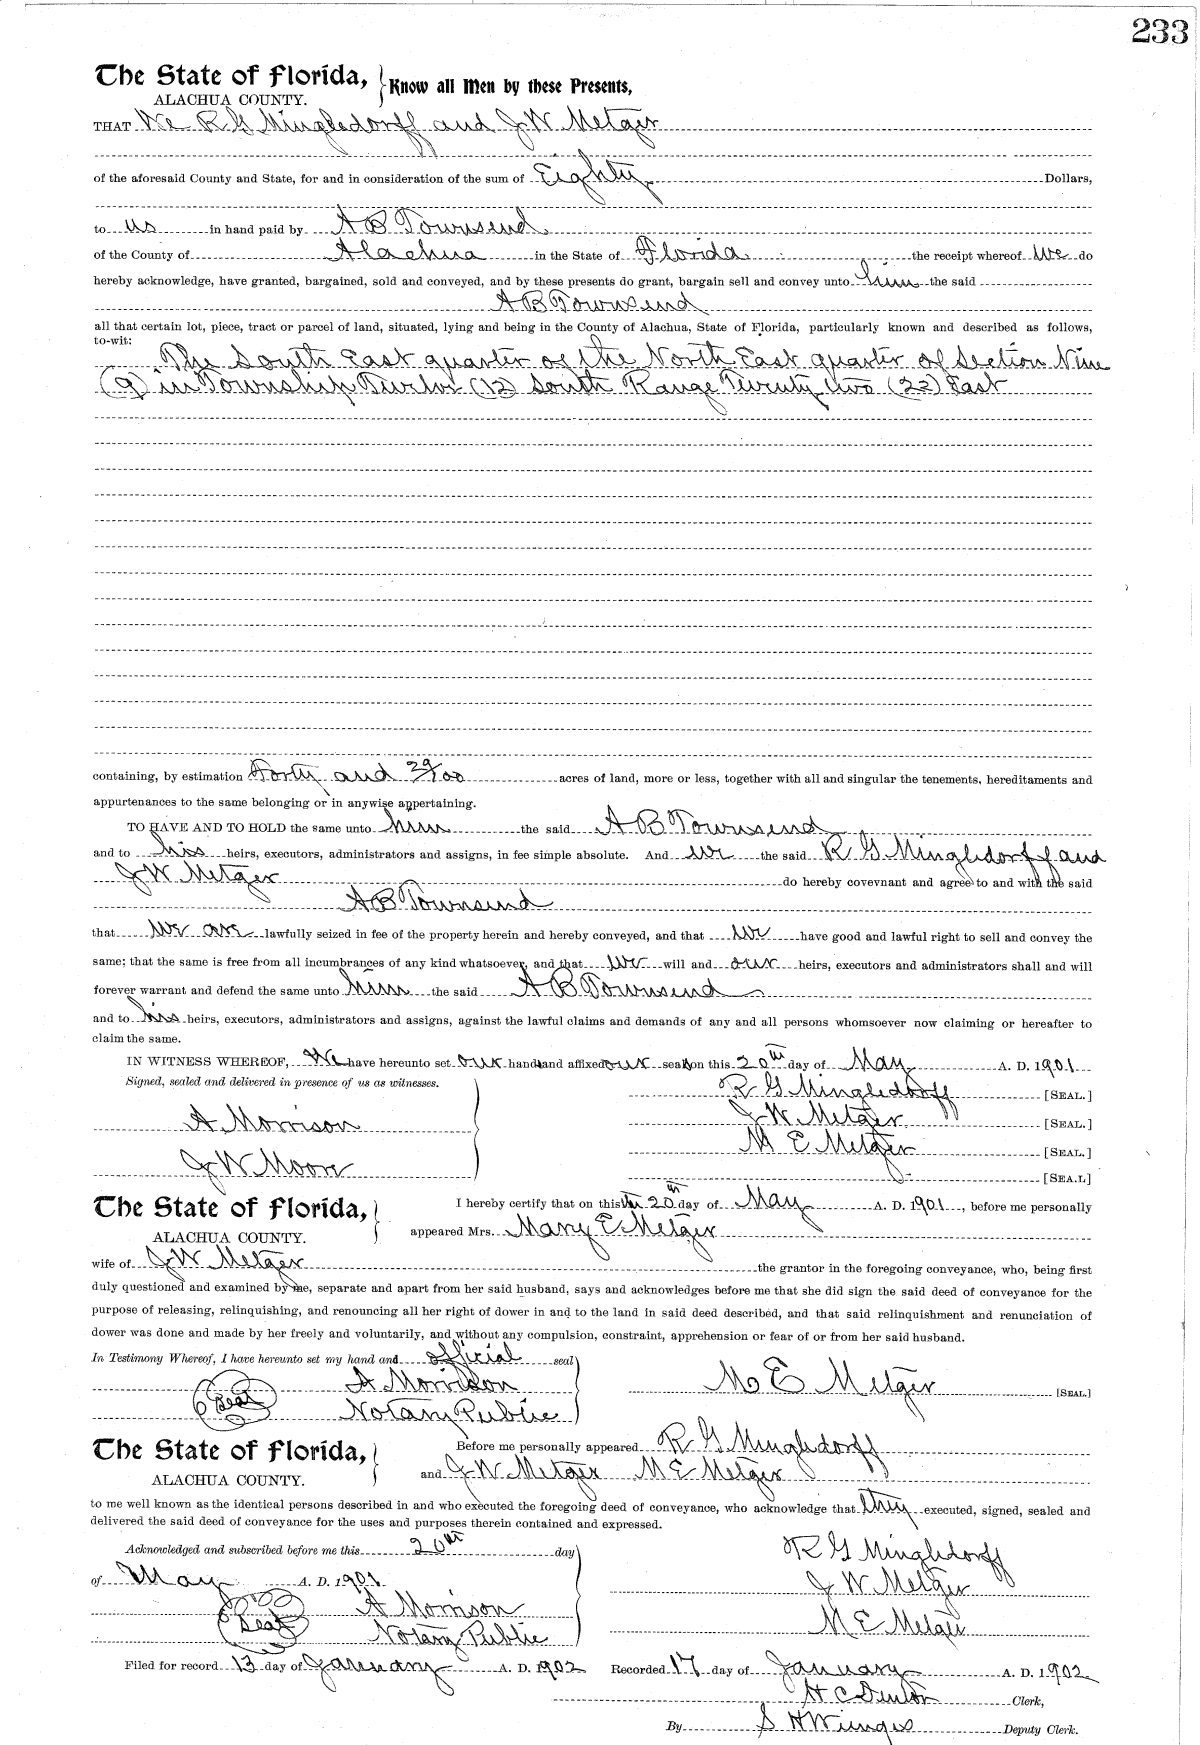 233
The State of Florida,
Know all Men by these Presents,
ALACHUA COUNTY.
THAT We R G Mingledorff and J W Metzger
of the aforesaid County and State, for and in consideration of the sum of Eighty Dollars,
to us in hand paid by A B Townsend
of the County of Alachua in the State of Florida the receipt whereof we do
hereby acknowledge, have granted, bargained, sold and conveyed, and by these presents do grant, bargain sell and convey unto him the said
A B Townsend
all that certain lot, piece, tract or parcel of land, situated, lying and being in the County of Alachua, State of Florida, particularly known and described as follows,
to-wit:
The South East quarter of the North East quarter of Section Nine
(9) in Township Twelve (12) South Range Twenty two (22) East
containing, by estimation Forty and 29/100 acres of land, more or less, together with all and singular the tenements, hereditaments and
appurtenances to the same belonging or in anywise appertaining.
TO HAVE AND TO HOLD the same unto him the said A B Townsend
and to his heirs, executors, administrators and assigns, in fee simple absolute. And we the said R G Mingledorff and
J W Metzger do hereby covevnant and agree to and with the said
A B Townsend
that we are lawfully seized in fee of the property herein and hereby conveyed, and that we have good and lawful right to sell and convey the
same; that the same is free from all incumbrances of any kind whatsoever, and that we will and our heirs, executors and administrators shall and will
forever warrant and defend the same unto him the said A B Townsend
and to his heirs, executors, administrators and assigns, against the lawful claims and demands of any and all persons whomsoever now claiming or hereafter to
claim the same.
IN WITNESS WHEREOF, We have hereunto set our hands and affixed our seals on this 20th day of May A. D. 1901
Signed, sealed and delivered in presence of us as witnesses.
R G Mingledorff [SEAL.]
A Morrison
J W Metzger [SEAL.]
M E Metzger [SEAL.]
J W Moon
[SEA.L]
The State of Florida,
I hereby certify that on this the 20th day of May A. D. 1901, before me personally
ALACHUA COUNTY.
appeared Mrs. Mary E Metzger
wife of J W Metzger the grantor in the foregoing conveyance, who, being first
duly questioned and examined by me, separate and apart from her said husband, says and acknowledges before me that she did sign the said deed of conveyance for the
purpose of releasing, relinquishing, and renouncing all her right of dower in and to the land in said deed described, and that said relinquishment and renunciation of
dower was done and made by her freely and voluntarily, and without any compulsion, constraint, apprehension or fear of or from her said husband.
In Testimony Whereof, I have hereunto set my hand and official seal
A Morrison
M E Metzger [SEAL.]
Seal Notary Public
The State of Florida,
Before me personally appeared R G Mingledorff
ALACHUA COUNTY.
and J W Metzger M E Metzger
to me well known as the identical persons described in and who executed the foregoing deed of conveyance, who acknowledge that they executed, signed, sealed and
delivered the said deed of conveyance for the uses and purposes therein contained and expressed.
Acknowledged and subscribed before me this 20th day
R G Mingledorff
of May A. D. 1901
J W Metzger
Seal A Morrison
M E Metzger
Notary Public
Filed for record 13 day of January A. D. 1902 Recorded 17 day of January A. D. 1902
H C Denton Clerk,
By S H Wienges Deputy Clerk.